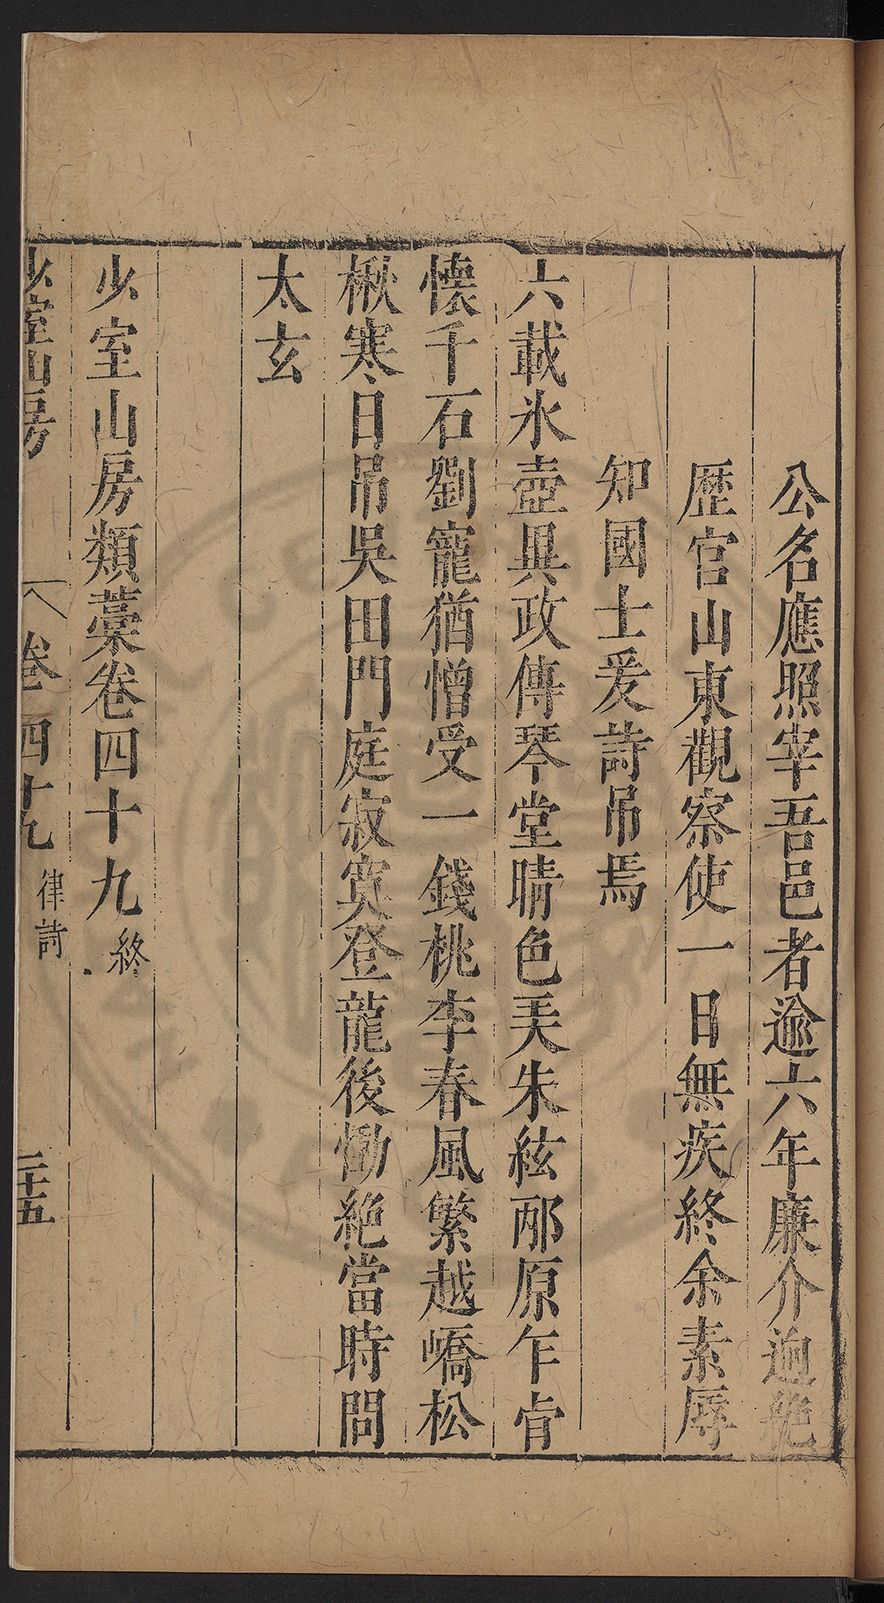 公名應照宰吾邑者逾六年廉介迥絶
歴官山東觀察使一日無疾終余素辱
知國士爰詩吊焉
六載氷壺異政傳琴堂晴色美朱絃邴原乍肯
懐千石劉寵猶憎受一錢桃李春風繁越嶠松
楸寒日吊吳田門庭寂寞登龍後慟絶當時問
太玄
少室山房類藁卷四十九終
少室山房
卷四十九
律詩
二十五